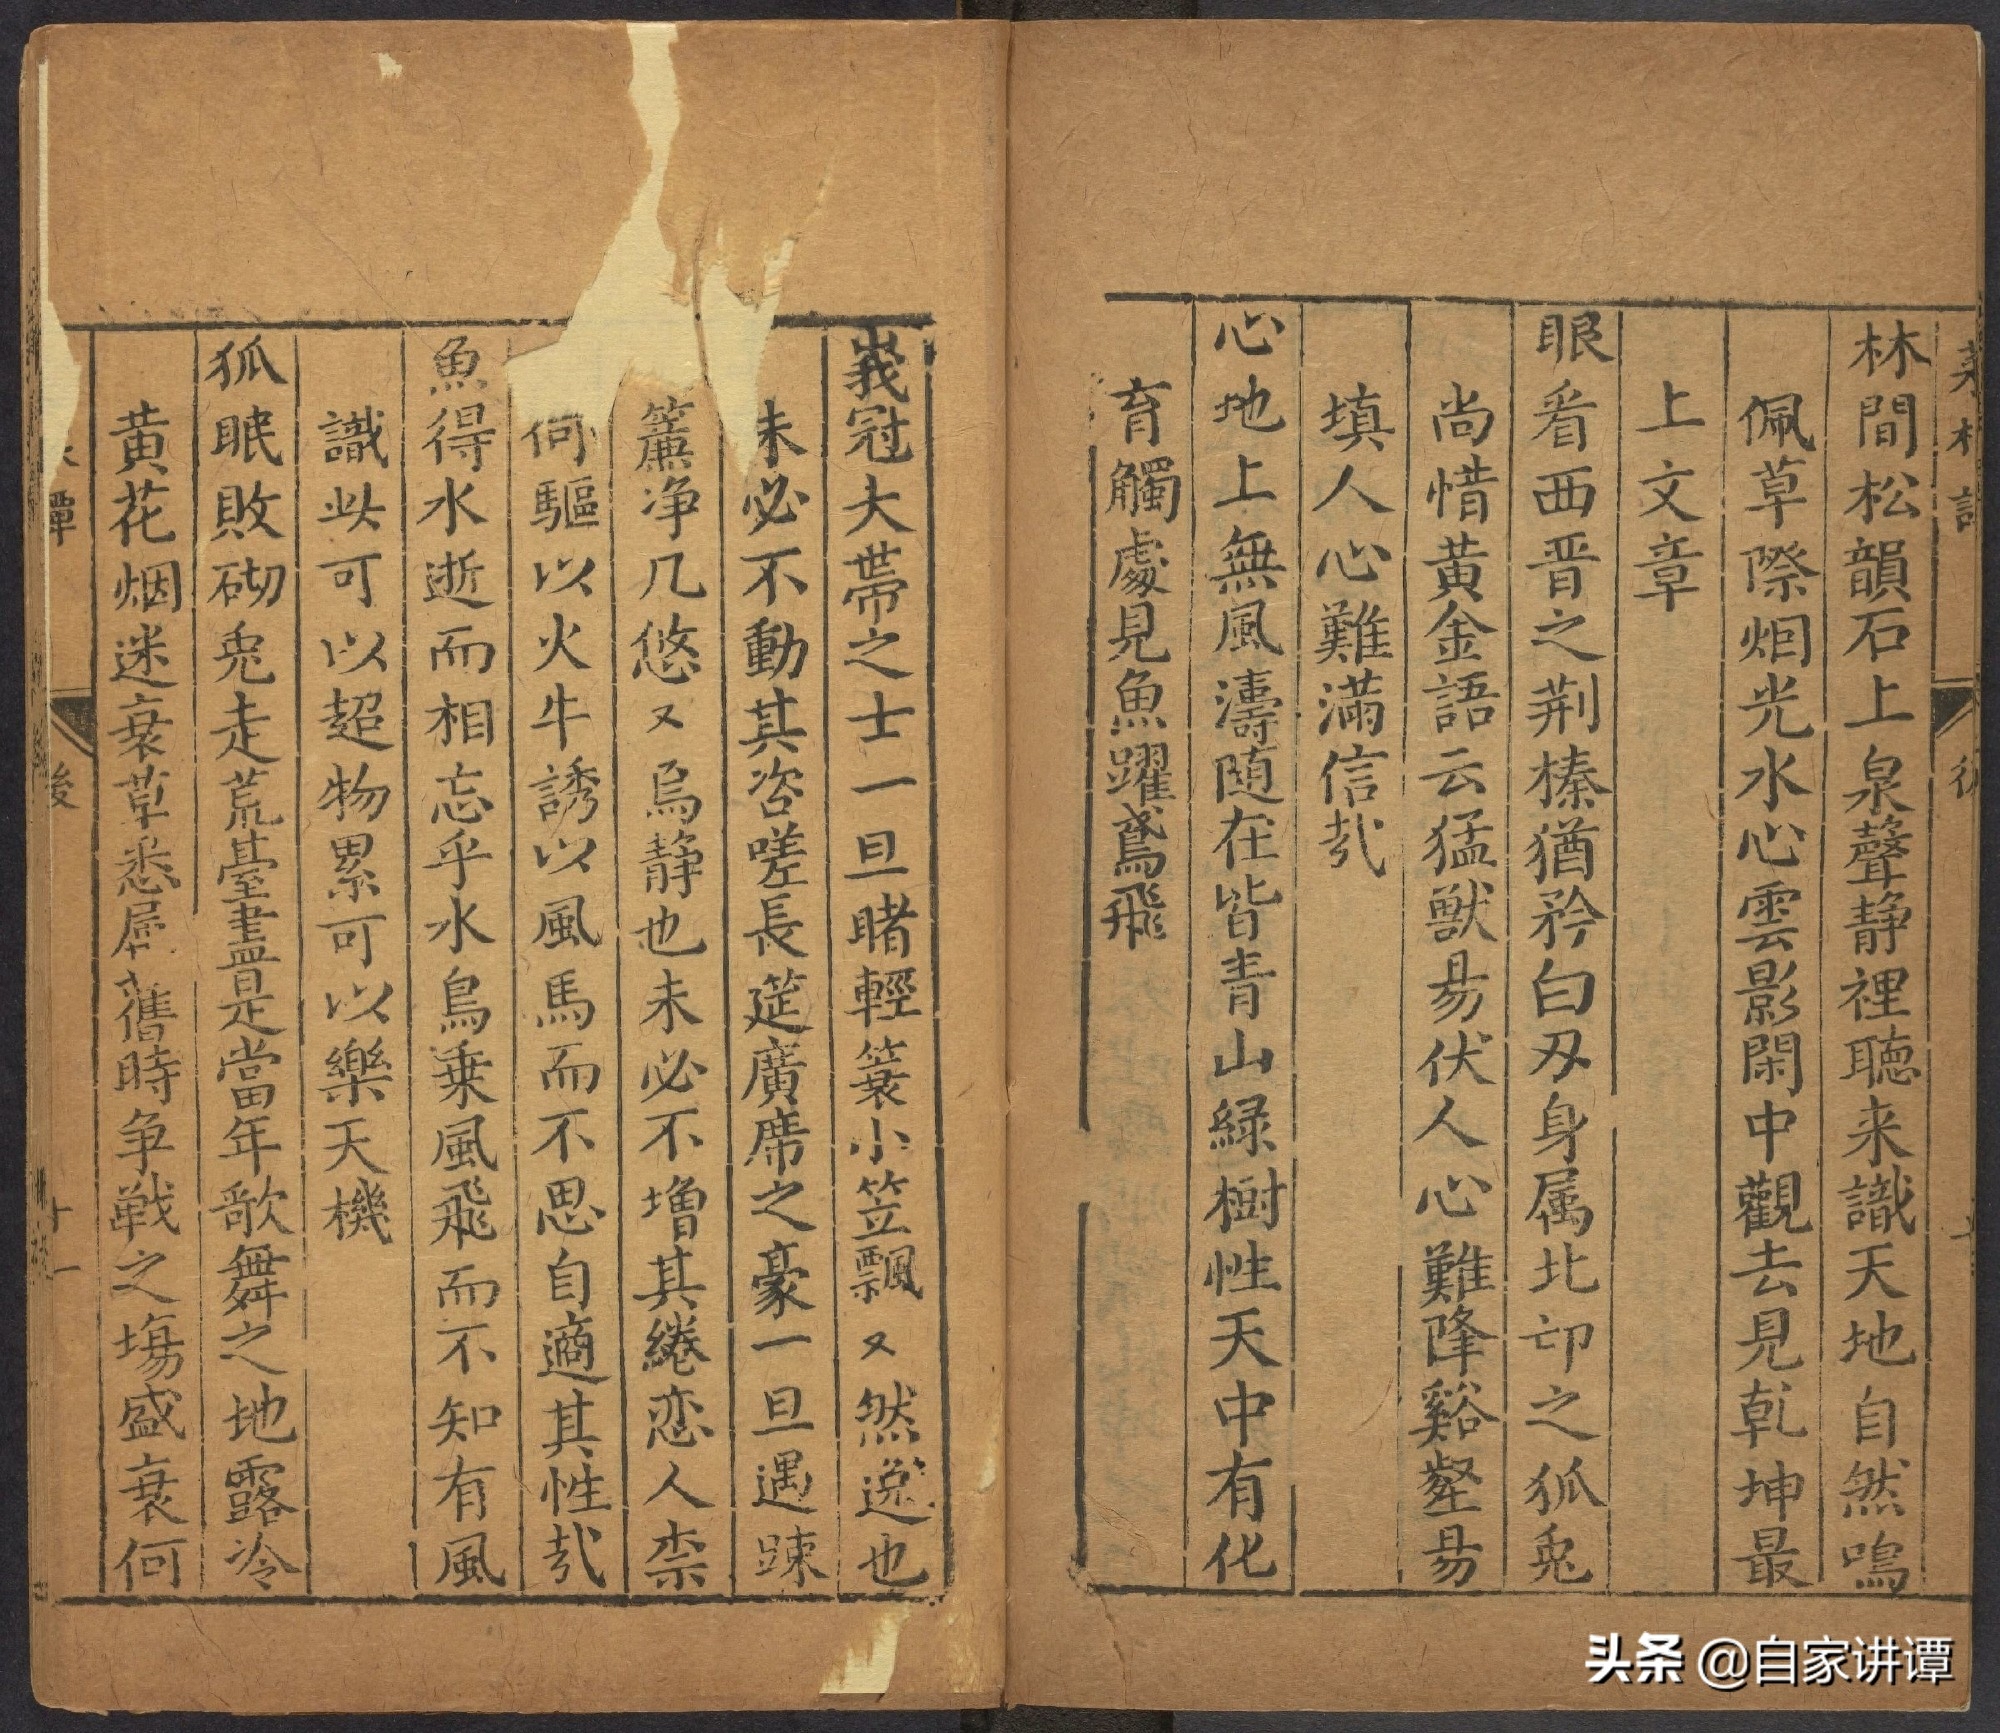 林間松韻石上泉聲静裡聴来識天地自然鳴
佩草際烟光水心雲影閑中觀去見乾坤最
上文章
眼看西晋之荆榛猶矜白刃身属北邙之狐兎
尚惜黄金語云猛獣易伏人心難降谿壑易
填人心難滿信㢤
心地上無風濤随在皆青山緑樹性天中有化
育觸處見魚躍鳶飛
峩冠大帶之士一旦睹輕簑小笠飄又然逸也
未必不動其咨嗟長筵廣席之豪一旦遇踈
簾净几悠又焉静也未必不增其綣恋人柰
何驅以火牛誘以風馬而不思自適其性㢤
魚得水逝而相忘乎水鳥乗風飛而不知有風
識此可以超物累可以樂天機
狐眠敗砌兎走荒臺盡是當年歌舞之地露冷
黄花烟迷衰草悉属舊時争戦之塲盛衰何
譚
後
十一
头条 @自家讲谭